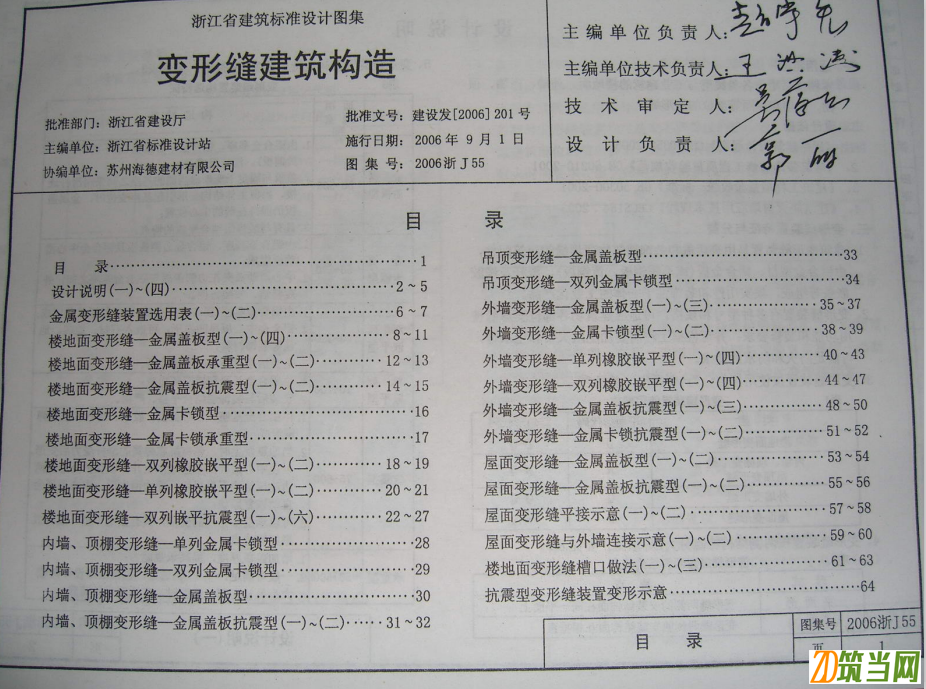 浙江省建筑标准设计图集
变形缝建筑构造
批准部门：浙江省建设厅
主编单位：浙江省标准设计站
协编单位：苏州海德建材有限公司
批准文号：建设发[2006]201号
施行日期：2006年9月1日
图集号：2006浙J55
主编单位负责人：
主编单位技术负责人：
技术审定人：
设计负责人：
目 录
目 录··········1
设计说明(一)~(四)··········2~5
金属变形缝装置选用表(一)~(二)··········6~7
楼地面变形缝—金属盖板型(一)~(四)··········8~11
楼地面变形缝—金属盖板承重型(一)~(二)··········12~13
楼地面变形缝—金属盖板抗震型(一)~(二)··········14~15
楼地面变形缝—金属卡锁型··········16
楼地面变形缝—金属卡锁承重型··········17
楼地面变形缝—双列橡胶嵌平型(一)~(二)··········18~19
楼地面变形缝—单列橡胶嵌平型(一)~(二)··········20~21
楼地面变形缝—双列嵌平抗震型(一)~(六)··········22~27
内墙、顶棚变形缝—单列金属卡锁型··········28
内墙、顶棚变形缝—双列金属卡锁型··········29
内墙、顶棚变形缝—金属盖板型··········30
内墙、顶棚变形缝—金属盖板抗震型(一)~(二)······31~32
吊顶变形缝—金属盖板型··········33
吊顶变形缝—双列金属卡锁型··········34
外墙变形缝—金属盖板型(一)~(三)··········35~37
外墙变形缝—金属卡锁型(一)~(二)··········38~39
外墙变形缝—单列橡胶嵌平型(一)~(四)··········40~43
外墙变形缝—双列橡胶嵌平型(一)~(四)··········44~47
外墙变形缝—金属盖板抗震型(一)~(三)··········48~50
外墙变形缝—金属卡锁抗震型(一)~(二)··········51~52
屋面变形缝—金属盖板型(一)~(二)··········53~54
屋面变形缝—金属盖板抗震型(一)~(二)··········55~56
屋面变形缝平接示意(一)~(二)··········57~58
屋面变形缝与外墙连接示意(一)~(二)··········59~60
楼地面变形缝槽口做法(一)~(三)··········61~63
抗震型变形缝装置变形示意··········64
目 录
图集号 2006浙J55
页 1
筑当网